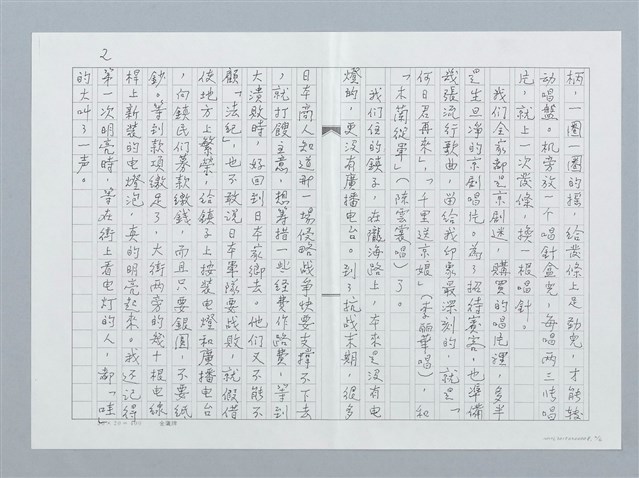 2
柄，一圈一圈的搖，給發條上足勁兒，才能轉
动唱盤。机旁放一个唱針盒兒，每唱两三張唱
片，就上一次發條，換一根唱針。
我們全家都是京剧迷，購買的唱片裡，多半
是生旦净的京剧唱片。為了招待賓客，也準備
幾張流行歌曲，留給我印象最深刻的，就是「
何日君再來」，「千里送京娘」（李麗華唱），和
「木蘭從軍」（陳雲裳唱）了。
我們住的鎮子，在隴海路上，本來是没有电
燈的，更沒有廣播电台。到了抗战末期，很多
日本商人知道那一場侵略战争快要支撐不下去
，就打餿主意，想籌措一些經費作路費，等到
大潰敗時，好回到日本家鄉去。他們又不能不
顧「法紀」，也不敢說日本軍隊要战敗，就假借
使地方上繁榮，給鎮子上按裝电燈和廣播电台
，向鎮民們募款繳錢，而且只要銀圓，不要紙
鈔。等到款項繳足了，大街两旁的幾十根电線
桿上新裝的电燈泡，真的明亮起來。我还記得
第一次明亮時，等在街上看电灯的人，都「哇」
的大叫了一声。